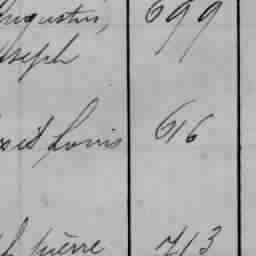 Augustin, 699
Joseph
Louis 616
pierre 713